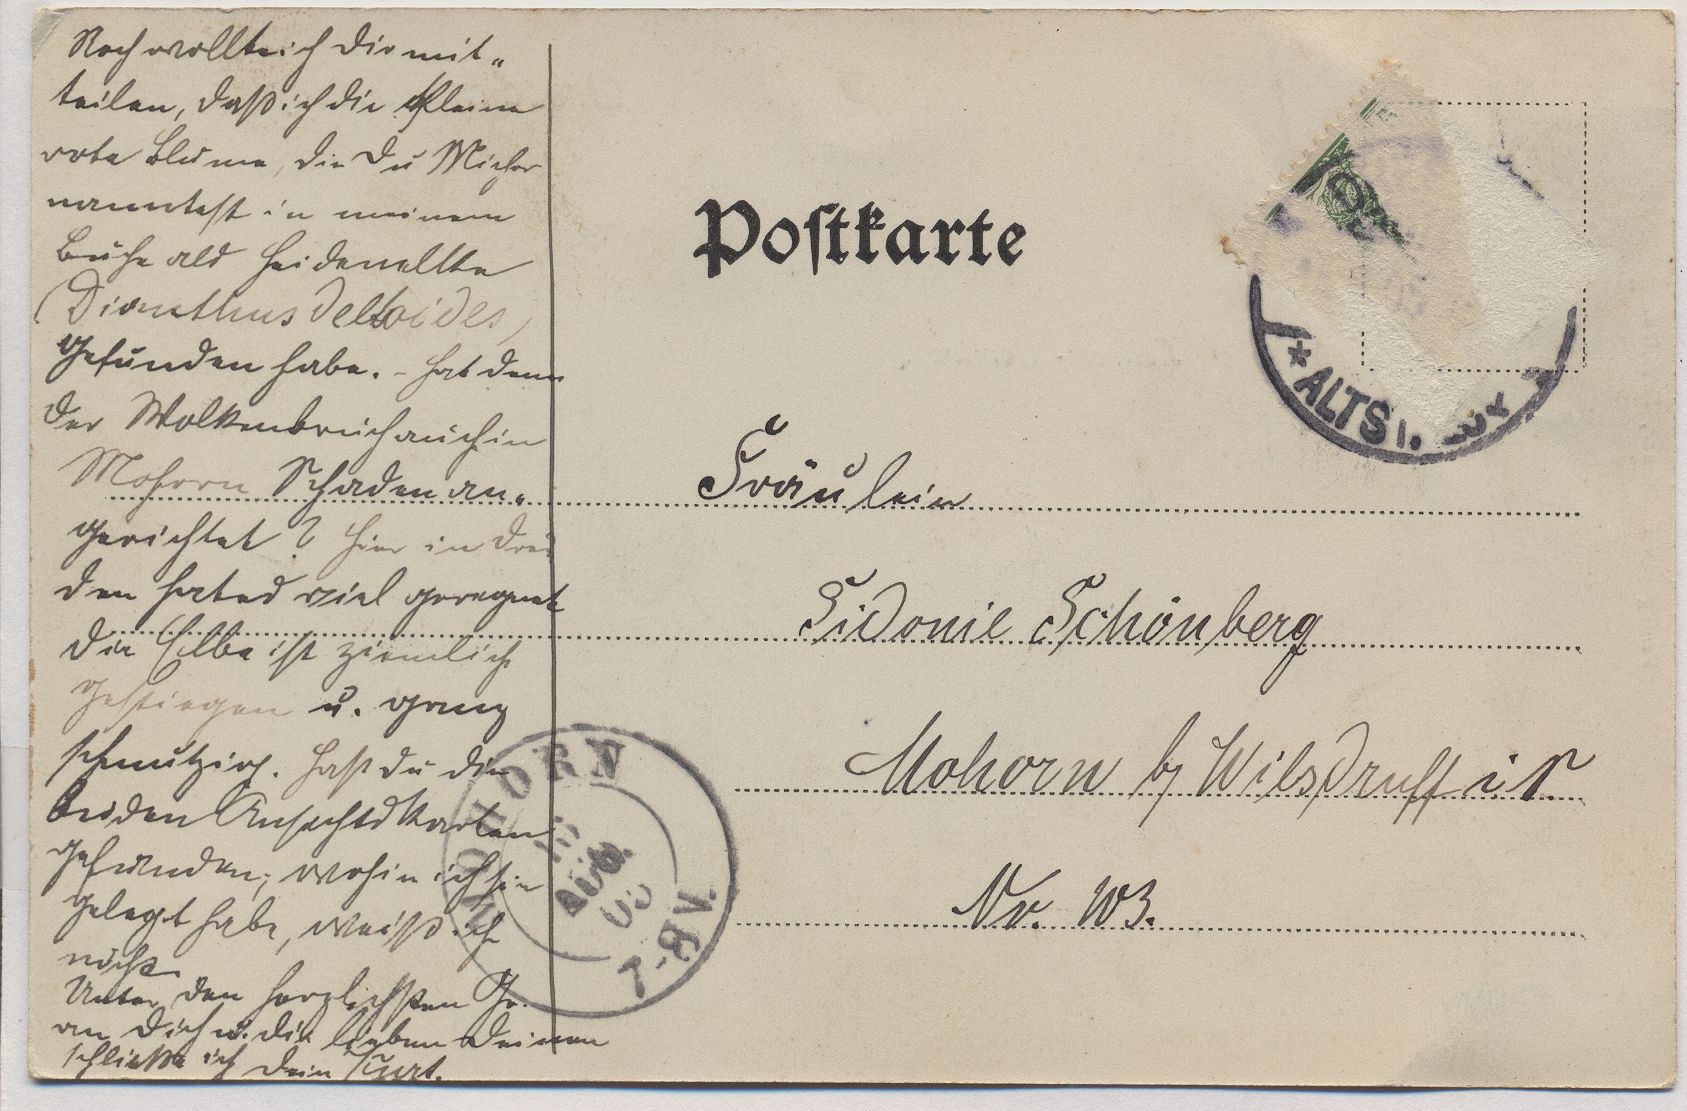 Noch wollte ich Dir mit-
teilen, daß ich die kleine
rote Blume, die Du Mieser
nanntest in meinem
Buche als Heidenelke
(Dianthus deltoides)
gefunden habe. - Hat denn
der Wolkenbruch auch in
Mohorn Schaden an-
gerichtet? Hier in Dres
den hat es viel geregnet
die Elbe ist ziemlich
gestiegen u. ganz
schmutzig. Hast Du die
beiden Ansichtskarten
gefunden; wohin ich sie
gelegt habe, weiß ich
nicht.
Unter den herzlichsten Gr.
an Dich u. die lieben Deinen
schließe ich Dein Kurt.
Postkarte
Fräulein
Sidonie Schönberg
Mohorn b/ Wilsdruff i. S.
Nr. 103.
* ALTST.
MOHORN
AUG.
7-8V.